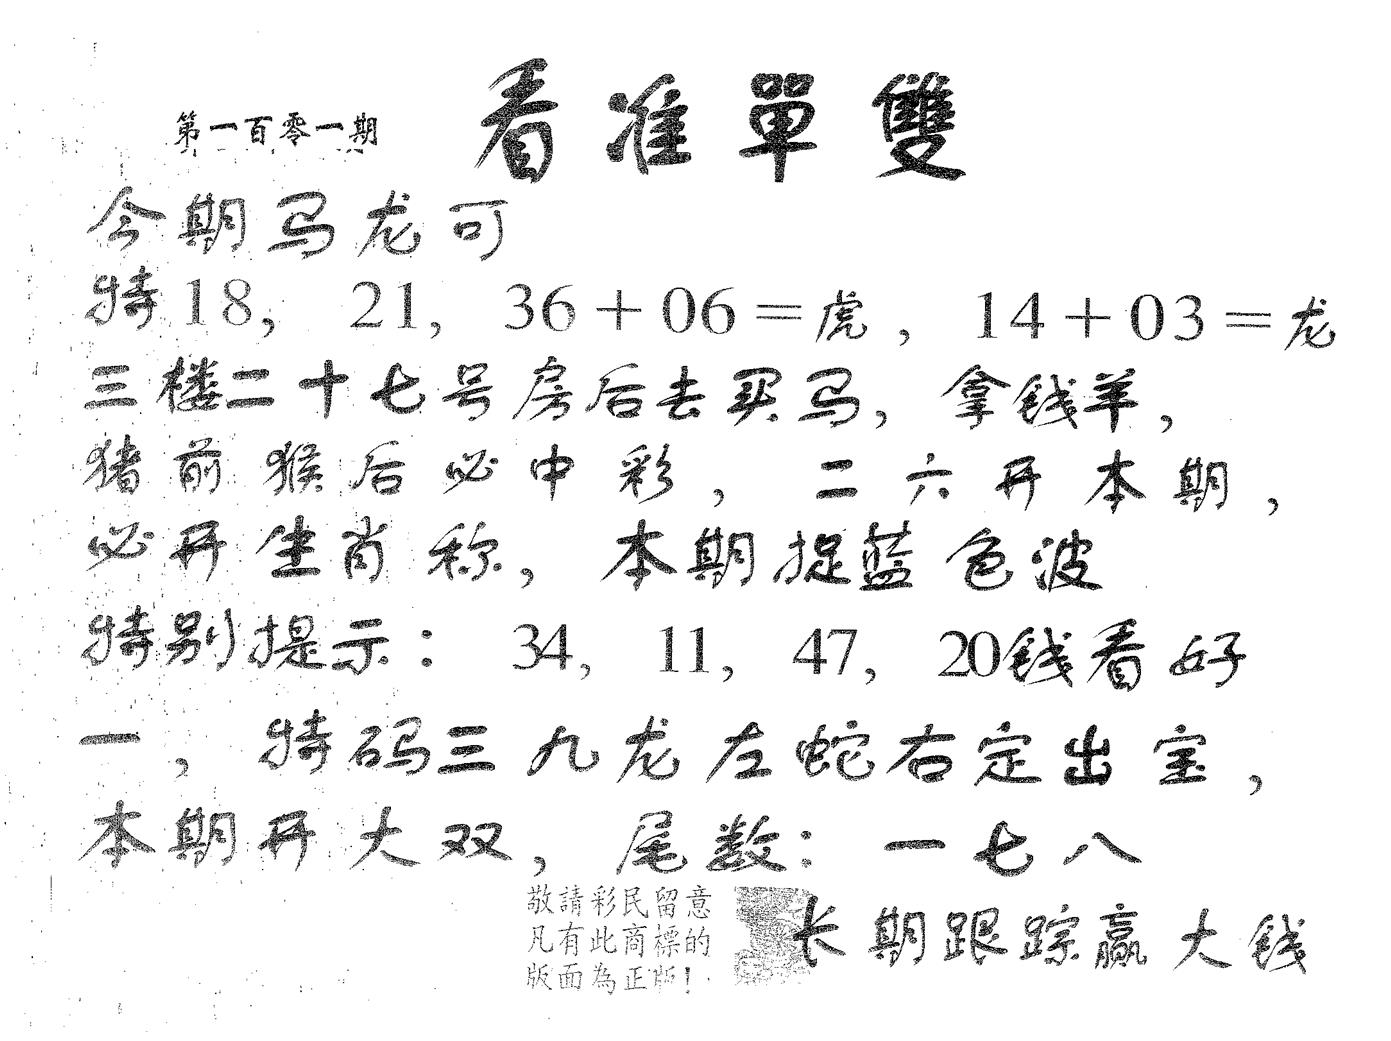 看准單雙
第一百零一期
今期马龙可
特18, 21, 36+06=虎, 14+03=龙
三楼二十七号房后去买马,拿钱羊,
猪前猴后必中彩, 二六开本期,
必开坐肖称, 本期捉蓝色波
特别提示: 34, 11, 47, 20钱看好
一, 特码三九龙左蛇右定出宝,
本期开大双, 尾数: 一七八
敬請彩民留意
凡有此商標的
版面為正版!
长期跟踪赢大钱